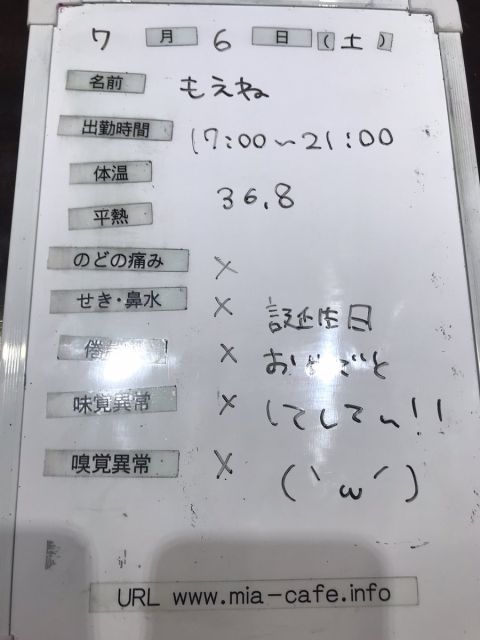 7 月 6 日 (土)
名前 もえね
出勤時間 17:00~21:00
体温 36.8
平熱
のどの痛み ×
せき・鼻水 ×
×
味覚異常 ×
嗅覚異常 ×
誕生日
して!!
(｀ω´)
URL www.mia-cafe.info